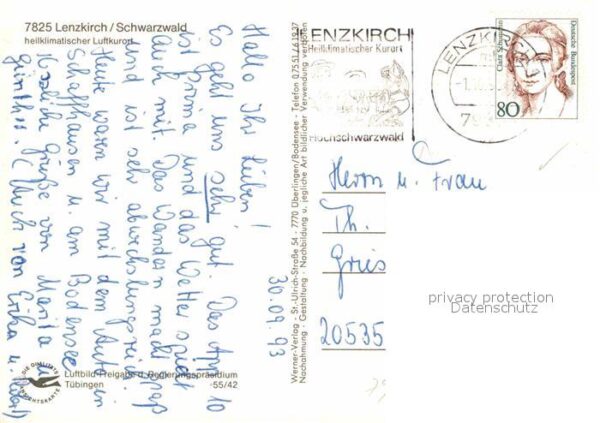 7825 Lenzkirch / Schwarzwald
heilklimatischer Luftkurort
30.09.93
Hallo Ihr Lieben!
Es geht uns sehr gut. Das App. 10
ist prima und das Wetter spielt
auch mit. Das Wandern macht Spaß
und ist sehr abwechslungsreich.
Heute waren wir mit dem Auto in
Schaffhausen u. am Bodensee.
Herzliche Grüße von Marita u.
Günther. (Auch von Erika u. Wolf)
Luftbild-Freigabe d. Regierungspräsidium
Tübingen -55/42
Werner-Verlag - St.-Ulrich-Straße 54 - 7770 Überlingen/Bodensee - Telefon 07551/61997
Nachahmung - Gestaltung - Nachbildung u. jegliche Art bildlicher Verwendung verboten
LENZKIRCH
Heilklimatischer Kurort
Hochschwarzwald
LENZKIRCH
80
Clara Schumann
Deutsche Bundespost
Herrn u. Frau
Th.
Gries
20535
privacy protection
Datenschutz